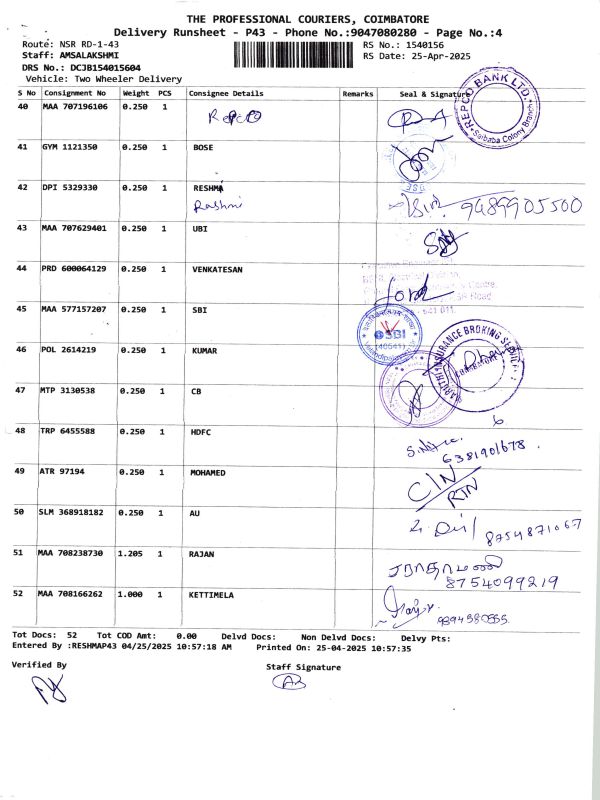 THE PROFESSIONAL COURIERS, COIMBATORE
Delivery Runsheet - P43 - Phone No.:9047080280 - Page No.:4
Route: NSR RD-1-43 RS No.: 1540156
Staff: AMSALAKSHMI RS Date: 25-Apr-2025
DRS No.: DCJB154015604
Vehicle: Two Wheeler Delivery
S No Consignment No Weight PCS Consignee Details Remarks Seal & Signature
REPCO BANK LTD. Saibaba Colony Branch
40 MAA 707196106 0.250 1 Repco
41 GYM 1121350 0.250 1 BOSE
42 DPI 5329330 0.250 1 RESHMA
Rashmi 9489905500
43 MAA 707629401 0.250 1 UBI
44 PRD 600064129 0.250 1 VENKATESAN
45 MAA 577157207 0.250 1 SBI
SBI (40641)
46 POL 2614219 0.250 1 KUMAR
INSURANCE BROKING
47 MTP 3130538 0.250 1 CB
48 TRP 6455588 0.250 1 HDFC
6381901678.
49 ATR 97194 0.250 1 MOHAMED
C/N
RTN
50 SLM 368918182 0.250 1 AU
8754871067
51 MAA 708238730 1.205 1 RAJAN
8754099219
52 MAA 708166262 1.000 1 KETTIMELA
Tot Docs: 52 Tot COD Amt: 0.00 Delvd Docs: Non Delvd Docs: Delvy Pts:
Entered By :RESHMAP43 04/25/2025 10:57:18 AM Printed On: 25-04-2025 10:57:35
Verified By Staff Signature